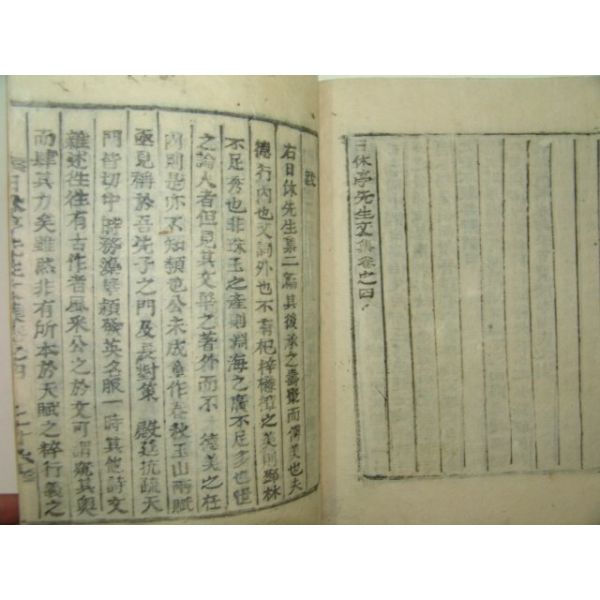 日休亭先生文集卷之四
跋
右日休先生集二篇其後承之壽棗而傳美也夫
德行內也文詞外也不有杞梓樟枏之美則鄧林
不足秀也非珠玉之產則淵海之廣不足多也怪
之論人者但見其文華之著外而不 德美之在
內則是亦不知類也公未成童作春秋玉山兩賦
亟見稱於吾先子之門及長對策 殿廷抗疏天
門皆切中時務藻思穎發英名服一時其他詩文
雜述往往有古作者風采公之於文可謂窺其奧
而肆其力矣雖然非有所本於天賦之粹行義之
日休亭先生文集卷之四